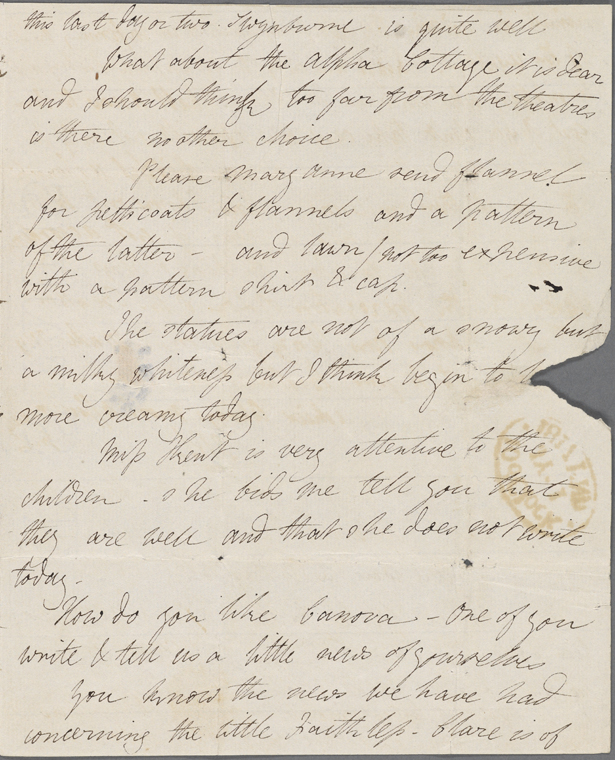 this last day or two. Swynburne is quite well
What about the alpha Cottage it is dear
and I should think too far from the theatres
is there no other choice.
Please Mary anne send flannel
for petticoats & flannels and a pattern
of the latter - and lawn (not too expensive
with a pattern shirt & cap.
The statues are not of a snowy but
a milky whiteness but I think begin to l
more creamy today.
Miss Kent is very attentive to the
children - she bids me tell you that
they are well and that she does not write
today.
How do you like Canova - One of you
write & tell us a little news of yourselves
You know the news we have had
concerning the little Faithless - Clare is of